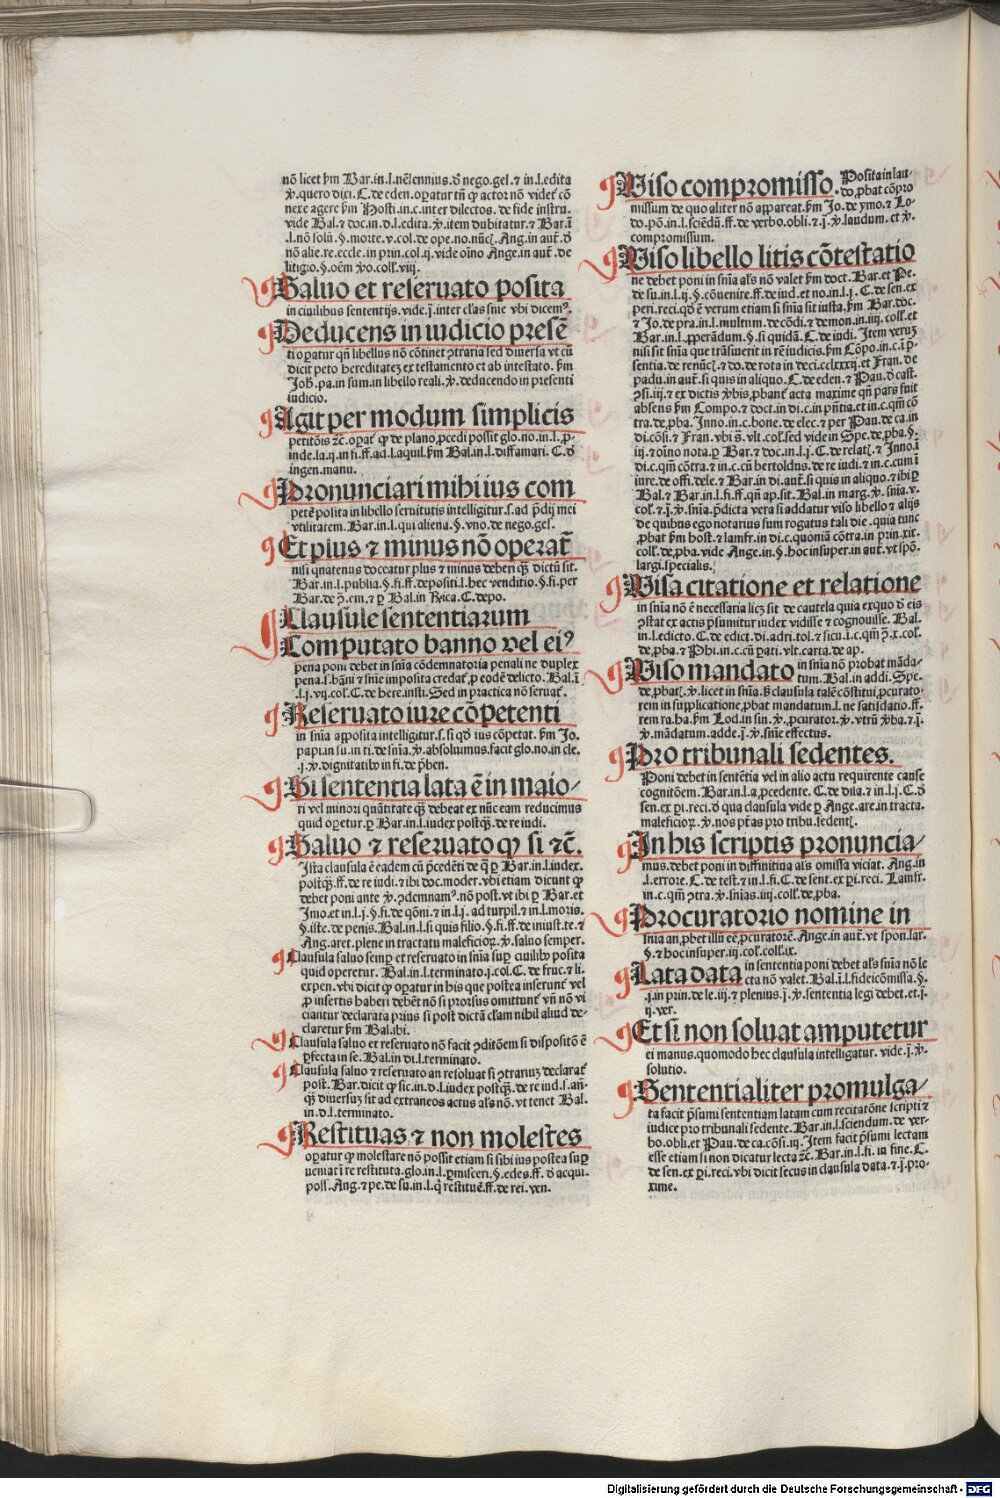 nō licet ẜm Bar.in.l.nēſennius.ð nego.geſ.⁊ in.l.edita
ꝟ.quero dixi.C.de eden.oꝑatur tñ ꝙ actor nō videt̉ cō
nexe agere ẜm Hoſti.in.c.inter dilectos.de fide inſtru.
vide Bal.⁊ doc.in.d.l.edita.ꝟ.item dubitatur.⁊ Bar.ī
l.nō ſolū.§.morte.v.col.de ope.no.nūc̄.Ang.in aut̄.ð
nō alie.re.eccle.in prin.col.ij.vide oīno Ange.in aut̄.de
litigio.§.oēm ꝟo.coll̄.viij.
Saluo et reſeruato poſita
in ciuilibus ſententijs.vide.j.inter cl̄as ſnīe vbi dicemꝰ.
Deducens in iudicio preſē
ti oꝑatur qñ libellus nō cōtinet ↄtraria ſed diuerſa vt cū
dicit peto hereditatē ex teſtamento et ab inteſtato.ẜm
Joh̄.pa.in ſum.in libello reali.ꝟ.deducendo in preſenti
iudicio.
Agit per modum ſimplicis
petitōis ⁊c̄.oꝑat̉ ꝙ de plano ꝓcedi poſſit glo.no.in.l.ꝓ-
inde.la.ij.in fi.ff.ad.l.aquil.ẜm Bal.in.l.diffamari.C.ð
ingen.manu.
Pronunciari mihi ius com
petē poſita in libello ſeruitutis intelligitur.ſ.ad p̄dij mei
vtilitatem.Bar.in.l.qui aliena.§.vno.de nego.geſ.
Et plus ⁊ minus nō operat̄
niſi quatenus doceatur plus ⁊ minus deberi qꝫ dictū ſit.
Bar.in.l.publia.§.fi.ff.depoſiti.l.hec venditio.§.ſi.per
Bar.de ↄ̄.em.⁊ ꝑ Bal.in Rica.C.depo.
Clauſule ſententiarum
Computato banno vel eiꝰ
pena poni debet in ſnīa cōdemnatoria penali ne duplex
pena.ſ.bāni ⁊ ſnīe impoſita credat̉ ꝓ eodē delicto.Bal.ī
.l.j.vij.col̄.C.de here.inſti.Sed in practica nō ſeruat̉.
Reſeruato iure cōpetenti
in ſnīa appoſita intelligitur.ſ.ſi qd̄ ius cōpetat.ẜm Jo.
papi.in ſu.in ti.de ſnīa.ꝟ.abſoluimus.facit glo.no.in cle.
.j.ꝟ.dignitatibꝰ in fi.de p̄ben.
Si ſententia lata ē in maio-
ri vel minori quātitate qꝫ debeat ex nūc eam reducimus
quid oꝑetur.ꝑ Bar.in.l.iudex poſtqꝫ.de re iudi.
Saluo ⁊ reſeruato ꝙ ſi ⁊c̄.
Iſta clauſula ē eadem cū p̄cedēti de q̄ ꝑ Bar.in.l.iudex.
poſtqꝫ.ff.de re iudi.⁊ ibi doc.moder.vbi etiam dicunt ꝙ
debet poni ante ꝟ.ↄdemnamꝰ.nō poſt.vt ibi ꝑ Bar.et
Imo.et in.l.j.§.fi.de qōni.⁊ in.l.j.ad turpil.⁊ in.l.moris.
§.iſte.de penis.Bal.in.l.ſi quis filio.§.fi.ff.de iniuſt.te.⁊
Ang.aret.plene in tractatu maleficioꝝ.ꝟ.ſaluo ſemper.
Clauſula ſaluo ſemꝑ et reſeruato in ſnīa ſuꝑ ciuilibꝰ poſita
quid operetur.Bal.in.l.terminato.j.col.C.de fruc.⁊ li-
expen.vbi dicit ꝙ oꝑatur in his que poſtea inſerunt̉ vel
ꝓ inſertis haberi debēt nō ſi prorſus omittunt̉ vñ nō vi
ciantur declarata prius ſi poſt dictā cl̄am nihil aliud de-
claretur ẜm Bal.ibi.
Clauſula ſaluo et reſeruato nō facit ↄditōem ſi diſpoſitō ē
ꝑfecta in ſe.Bal.in di.l.terminato.
Clauſula ſaluo ⁊ reſeruato an reſoluat ſi ↄtrariuꝫ declarat̉
poſt.Bar.dicit ꝙ ſic.in.d.l.iudex poſtqꝫ.de re iud.ſ.an̄-
qꝫ diuerſuꝫ ſit ad extraneos actus al̄s nō.vt tenet Bal.
in.d.l.terminato.
Reſtituas.⁊ non moleſtes
oꝑatur ꝙ moleſtare nō poſſit etiam ſi ſibi ius poſtea ſuꝑ
ueniat ī re reſtituta.glo.in.l.ꝑmiſceri.§.edes.ff.ð acqui.
poſſ.Ang.⁊ pe.de ſu.in.l.q̄ reſtituē.ff.de rei.ven.
Viſo compromiſſo. Poſita in lau-
do ꝓbat cōpro
miſſum de quo aliter nō appareat.ẜm Jo.de ymo.⁊ Lo-
do.pō.in.l.ſciēdū.ff.de verbo.obli.⁊.j.ꝟ.laudum.et ꝟ.
compromiſſum.
Viſo libello litis cōteſtatio
ne debet poni in ſnīa al̄s nō valet ẜm doct.Bar.et Pe.
de ſu.in.l.ij.§.cōuenire.ff.de iud.et no.in.l.j.C.de ſen.ex
peri.reci.qd̄ ē verum etiam ſi ſnīa ſit iuſta.ẜm Bar.doc.
⁊ Jo.de pra.in.l.multum.de cōdi.⁊ demon.in.iiij.coll̄.et
Bar.in.l.ꝓperādum.§.ſi quidā.C.de iudi. Item veruꝫ
niſi ſit ſnīa que trāſiuerit in rē iudicis.ẜm Cōpo.in.c.i.p̄-
ſentia.de renūc̄.⁊ do.de rota in deci.cclxxxij.et Fran.de
padu.in aut̄.ſi quis in aliquo.C.de eden.⁊ Pau.ð caſt.
ↄſi.iij.⁊ ex dictis ꝟbis.ꝓbant̉ acta maxime qñ pars fuit
abſens ẜm Compo.⁊ doct.in di.c.in p̄ntia.et in.c.qm̄ cō
tra.de ꝓba.Inno.in.c.bone.de elec.⁊ per Pau.de ca.in
di.cōſi.⁊ Fran.vbi s̄.vlt.col̄.ſed vide in Spe.de ꝓba.§.
iij.⁊ oīno nota.ꝑ Bar.⁊ doc.in.l.j.C.de relat̄.⁊ Inno.ī
di.c.qm̄ cōtra.⁊ in.c.cū bertoldus.de re iudi.⁊ in.c.cum ī
iure.de offi.dele.⁊ Bar.in di.aut̄.ſi quis in aliquo.⁊ ibi ꝑ
Bal.⁊ Bar.in.l.fi.ff.qn̄ ap.ſit.Bal.in marg.ꝟ.ſnīa.v.
col̄.⁊.j.ꝟ.ſnīa.p̄dicta vera ſi addatur viſo libello ⁊ alijs
de quibus ego notarius ſum rogatus tali die.quia tunc
ꝓbat ẜm hoſt.⁊ lamfr.in di.c.quoniā cōtra.in prin.xix.
coll̄.de ꝓba.vide Ange.in.§.hoc inſuper.in aut̄.vt ſpō.
largi.ſpecialis.
Viſa citatione et relatione
in ſnīa nō ē neceſſaria licꝫ ſit de cautela quia exquo d̄ eis
ↄſtat ex actis p̄ſumitur iudex vidiſſe ⁊ cognouiſſe. Bal.
in.l.edicto.C.de edict.di.adri.tol.⁊ ſicu.i.c.qm̄ ↄ̄.x.col̄.
de ꝓba.⁊ Phi.in.c.cū ꝑati.vlt.carta.de ap.
Viſo mandato in ſnīa nō probat māda-
tum.Bal.in addi.Spe.
de ꝓbat̄.ꝟ.licet in ſnīa.ẜ clauſula talē cōſtitui ꝓcurato-
rem in ſupplicatione ꝓbat mandatum.l.ne ſatiſdatio.ff.
rem ra.ha.ẜm Lod.in ſin.ꝟ.ꝓcurator.ꝟ.vtrū ꝟba.⁊.j.
ꝟ.mādatum.adde.j.ꝟ.ſnīe effectus.
Pro tribunali ſedentes.
Poni debet in ſentētia vel in alio actu requirente cauſe
cognitōem.Bar.in.l.a ꝓcedente.C.de dila.⁊ in.l.j.C.ð
ſen.ex ꝑi.reci.ð qua clauſula vide ꝑ Ange.are.in tracta.
maleficioꝝ.ꝟ.nos p̄tās pro tribu.ſedent̄.
In his ſcriptis pronuncia-
mus.debet poni in diffinitiua al̄s omiſſa viciat. Ang.in
.l.errore.C.de teſt.⁊ in.l.fi.C.de ſent.ex ꝑi.reci. Lamfr.
in.c.qm̄ ↄtra.ꝟ.ſnīas.iiij.col̄.de ꝓba.
Procuratorio nomine in
ſnīa an ꝓbet illū eē ꝓcuratorē.Ange.in aut̄.vt ſpon.lar.
§.⁊ hoc inſuper.iij.col̄.coll̄.ix.
Lata data in ſententia poni debet al̄s ſnīa nō le
cta nō valet.Bal.ī.l.fideicōmiſſa.§.
.j.in prin.de le.iij.⁊ plenius.j.ꝟ.ſententia legi debet.et.j.
ij.ver.
Et ſi non ſoluat amputetur
ei manus.quomodo hec clauſula intelligatur.vide.j.ꝟ.
ſolutio.
Sententialiter promulga-
ta facit p̄ſumi ſententiam latam cum recitatōne ſcripti ⁊
iudice pro tribunali ſedente.Bar.in.l.ſciendum.de ver-
bo.obli.et Pau.de ca.cōſi.iij.Item facit p̄ſumi lectam
eſſe etiam ſi non dicatur lecta ⁊c̄.Bar.in.l.fi.in fine.C.
de ſen.ex ꝑi.reci.vbi dicit ſecus in clauſula data.⁊.j.pro-
xime.
Digitalisierung gefördert durch die Deutsche Forschungsgemeinschaft - DFG